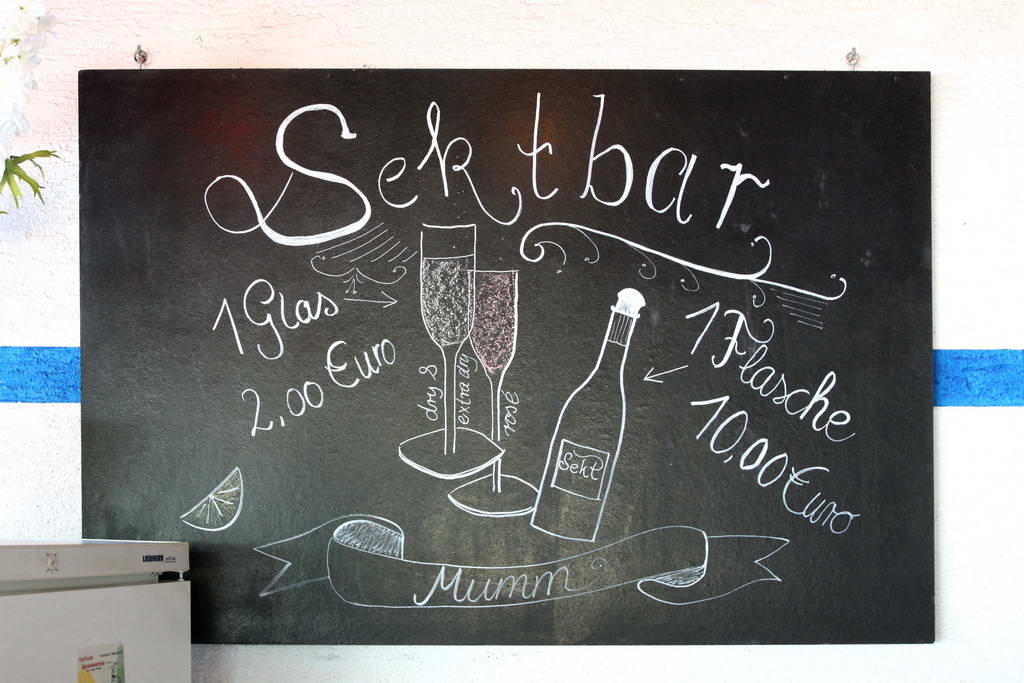 Sektbar
1 Glas
2,00 Euro
dry &
extra dry
rosé
1 Flasche
10,00 Euro
Sekt
Mumm
LIEBHERR